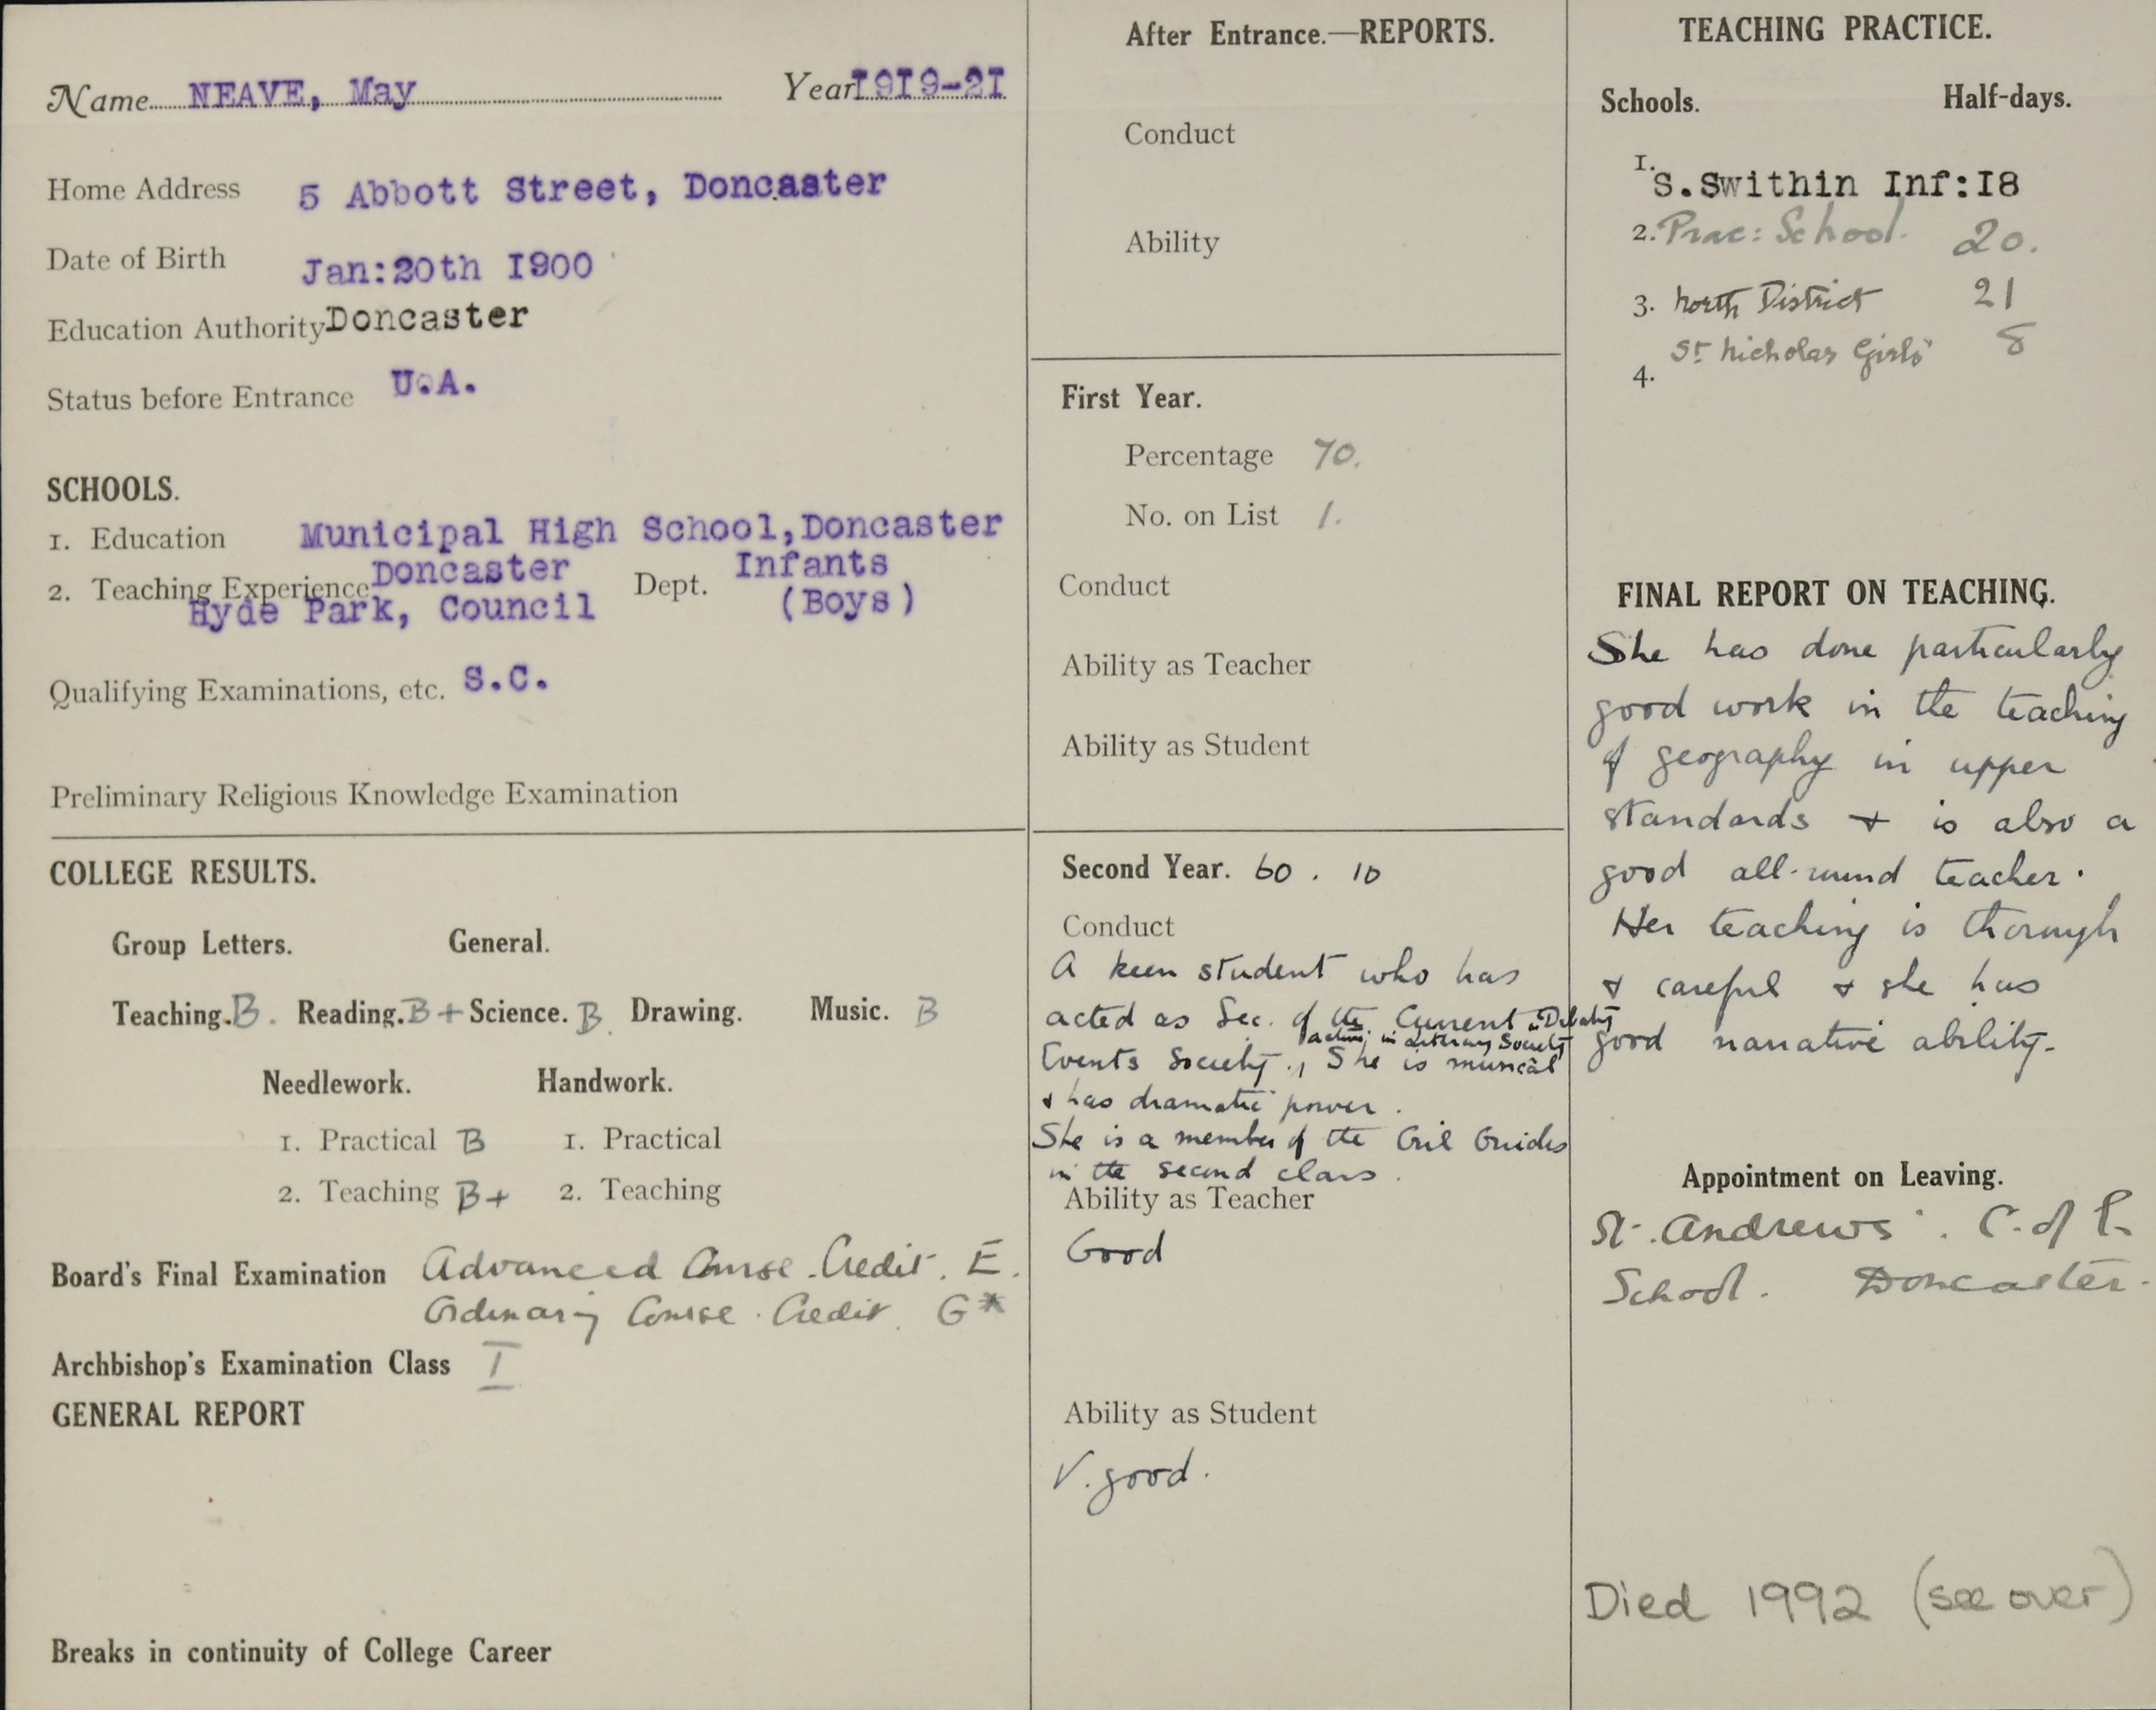 Name NEAVE, May Year I9I9-2I
Home Address 5 Abbott Street, Doncaster
Date of Birth Jan:20th I900
Education Authority Doncaster
Status before Entrance U.A.
SCHOOLS.
1. Education Municipal High School,Doncaster
2. Teaching Experience Doncaster Dept. Infants
Hyde Park, Council (Boys)
Qualifying Examinations, etc. S.C.
Preliminary Religious Knowledge Examination
COLLEGE RESULTS.
Group Letters. General.
Teaching. B. Reading. B+ Science. B Drawing. Music. B
Needlework. Handwork.
1. Practical B 1. Practical
2. Teaching B+ 2. Teaching
Board's Final Examination Advanced Course. Credit. E.
Ordinary Course. Credit. G*
Archbishop's Examination Class I
GENERAL REPORT
Breaks in continuity of College Career
After Entrance.—REPORTS.
Conduct
Ability
First Year.
Percentage 70.
No. on List 1.
Conduct
Ability as Teacher
Ability as Student
Second Year. 60 . 10
Conduct
A keen student who has
acted as Sec. of the Current
in Literary Society
Events Society., She is musical
& has dramatic power.
She is a member of the Girl Guides
in the second class.
Ability as Teacher
Good
Ability as Student
V. good.
TEACHING PRACTICE.
Schools. Half-days.
1. S.Swithin Inf:I8
2. Prac: School. 20.
3. North District 21
St Nicholas Girls' 8
4.
FINAL REPORT ON TEACHING.
She has done particularly
good work in the teaching
of geography in upper
standards & is also a
good all-round teacher.
Her teaching is thorough
& careful & she has
good narrative ability.
Appointment on Leaving.
St. Andrews'. C. of E.
School. Doncaster.
Died 1992 (see over)